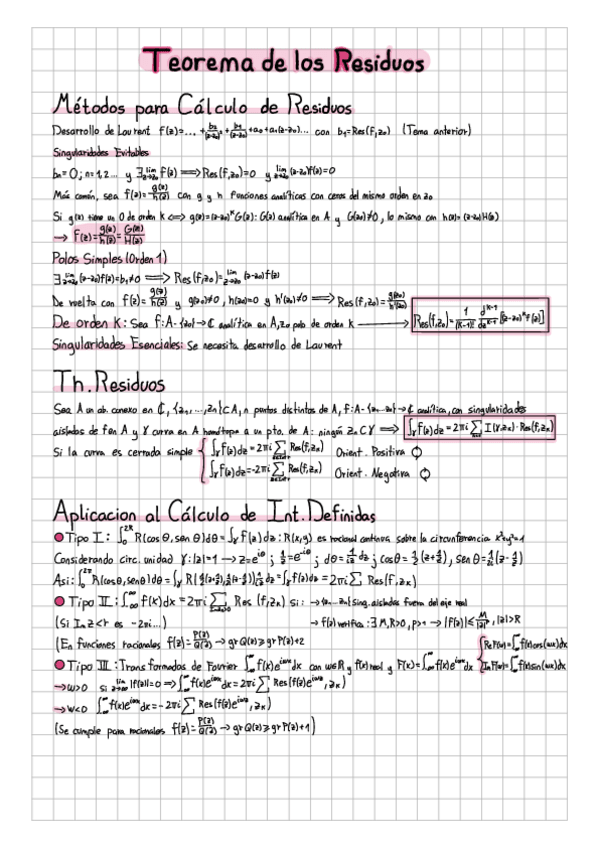 Teorema de los Residuos
Métodos para Cálculo de Residuos
Desarrollo de Laurent f(z)=...+b₂/(z-z₀)²+b₁/(z-z₀)+a₀+a₁(z-z₀)... con b₁=Res(f,z₀) (Tema anterior)
Singularidades Evitables
bₙ=0; n=1,2... y ∃ lim z→z₀ f(z) ⟹ Res(f,z₀)=0 y lim z→z₀ (z-z₀)f(z)=0
Más común, sea f(z)=g(z)/h(z) con g y h funciones analíticas con ceros del mismo orden en z₀
Si g(z) tiene un 0 de orden k ⟺ g(z)=(z-z₀)ᵏG(z): G(z) analítica en A y G(z₀)≠0, lo mismo con h(z)=(z-z₀)H(z)
→ F(z)=g(z)/h(z)=G(z)/H(z)
Polos Simples (Orden 1)
∃ lim z→z₀ (z-z₀)f(z)=b₁≠0 ⟹ Res(f,z₀)=lim z→z₀ (z-z₀)f(z)
De vuelta con f(z)=g(z)/h(z) y g(z₀)≠0, h(z₀)=0 y h'(z₀)≠0 ⟹ Res(f,z₀)=g(z₀)/h'(z₀)
De orden K: Sea f:A-{z₀}→ℂ analítica en A, z₀ polo de orden k → Res(f,z₀)=1/(k-1)! dᵏ⁻¹/dzᵏ⁻¹[(z-z₀)ᵏf(z)]
Singularidades Esenciales: Se necesita desarrollo de Laurent
Th.Residuos
Sea A un ab. conexo en ℂ, {z₁,...,zₙ}⊂A, n puntos distintos de A, f:A-{z₁...zₙ}→ℂ analítica, con singularidades
aisladas de f en A y γ curva en A homótopa a un pto. de A: ningún zₙ∈γ ⟹ ∫γ f(z)dz=2πi∑ I(γ,zₖ)·Res(f,zₖ)
Si la curva es cerrada simple { ∫γ f(z)dz=2πi∑ Res(f,zₖ) Orient. Positiva ↺
∫γ f(z)dz=-2πi∑ Res(f,zₖ) Orient. Negativa ↻
Aplicacion al Cálculo de Int.Definidas
Tipo I: ∫₀²ᴿ R(cos θ, sen θ)dθ=∫γ f(z)dz: R(x,y) es racional continua sobre la circunferencia x²+y²=1
Considerando circ. unidad γ:|z|=1→z=e^iθ; 1/z=e^-iθ; dθ=1/iz dz; cosθ=1/2(z+1/z), senθ=1/2i(z-1/z)
Asi: ∫₀²π R(cosθ,senθ)dθ=∫γ R(1/2(z+1/z),1/2i(z-1/z))1/iz dz=∫γ f(z)dz=2πi∑ Res(f,zₖ)
Tipo II: ∫-∞^∞ f(x)dx=2πi∑ Res(f,zₖ) Si: →{z₁...zₙ} sing. aisladas fuera del eje real
(Si Im z<r es -2πi...) →f(z) verifica: ∃M,R>0, p>1→|f(z)|≤M/|z|ᵖ, |z|>R
(En funciones racionales f(z)=P(z)/Q(z)→gr Q(z)≥gr P(z)+2
Tipo III: Transformadas de Fourier ∫-∞^∞ f(x)e^iωx dx con ω∈ℝ y f(x) real y F(x)=∫-∞^∞ f(x)e^iωx dx { Re F(ω)=∫-∞^∞ f(x)cos(ωx)dx
Im F(ω)=∫-∞^∞ f(x)sin(ωx)dx
→ω>0 si lim z→∞ |f(z)|=0⟹∫-∞^∞ f(x)e^iωx dx=2πi∑ Res(f(z)e^iωz,zₖ)
→ω<0 ∫-∞^∞ f(x)e^iωx dx=-2πi∑ Res(f(z)e^iωz,zₖ)
(Se cumple para racionales f(z)=P(z)/Q(z)→gr Q(z)≥gr P(z)+1)